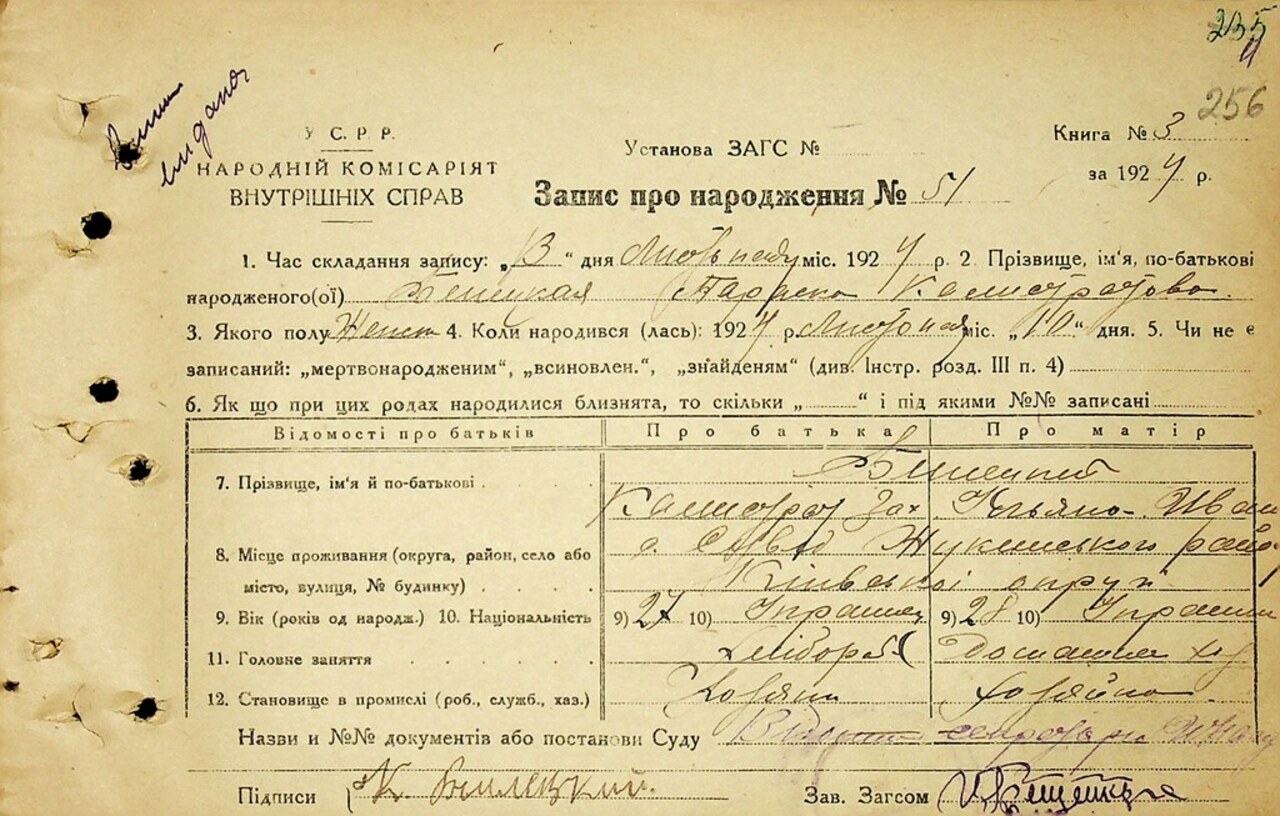 235
256
Випис
видано
У С. Р. Р.
НАРОДНІЙ КОМІСАРІЯТ
ВНУТРІШНІХ СПРАВ
Установа ЗАГС №
Книга № 3
за 1924 р.
Запис про народження № 51
1. Час складання запису: „13“ дня Листопаду міс. 1924 р. 2. Прізвище, ім'я, по-батькові
народженого(ої)
3. Якого полу Женск 4. Коли народився (лась): 1924 р. Листопад міс. „10“ дня. 5. Чи не є
записаний: „мертвонародженим“, „всиновлен.“, „знайденям“ (див. Інстр. розд. III п. 4)
6. Як що при цих родах народилися близнята, то скільки „ “ і під якими №№ записані
Відомості про батьків Про батька Про матір
7. Прізвище, ім'я й по-батькові
Калистрат Зах Ульяна Иван
8. Місце проживання (округа, район, село або
місто, вулиця, № будинку)
с. Жукинського району
Київської округи
9. Вік (років од народж.) 10. Національність 9) 27 10) Украинец 9) 28 10) Украинк
11. Головне заняття Хлібороб Домашнее
12. Становище в промислі (роб., служб., хаз.) Хозяин Хозяйка
Назви и №№ документів або постанови Суду
Підписи К. Зав. Загсом